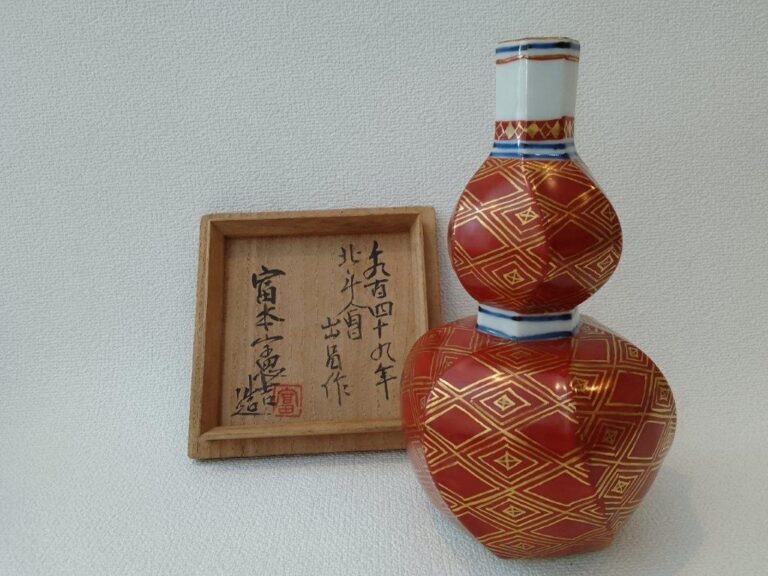 九百四十九年
北斗會
出品作
富本憲吉
造
富